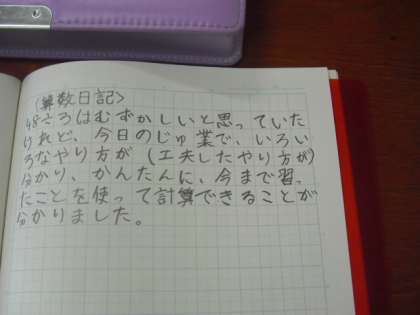 〈算数日記〉
48÷3はむずかしいと思っていた
けれど、今日のじゅ業で、いろい
ろなやり方が(工夫したやり方が)
分かり、かんたんに、今まで習っ
たことを使って計算できることが
分かりました。